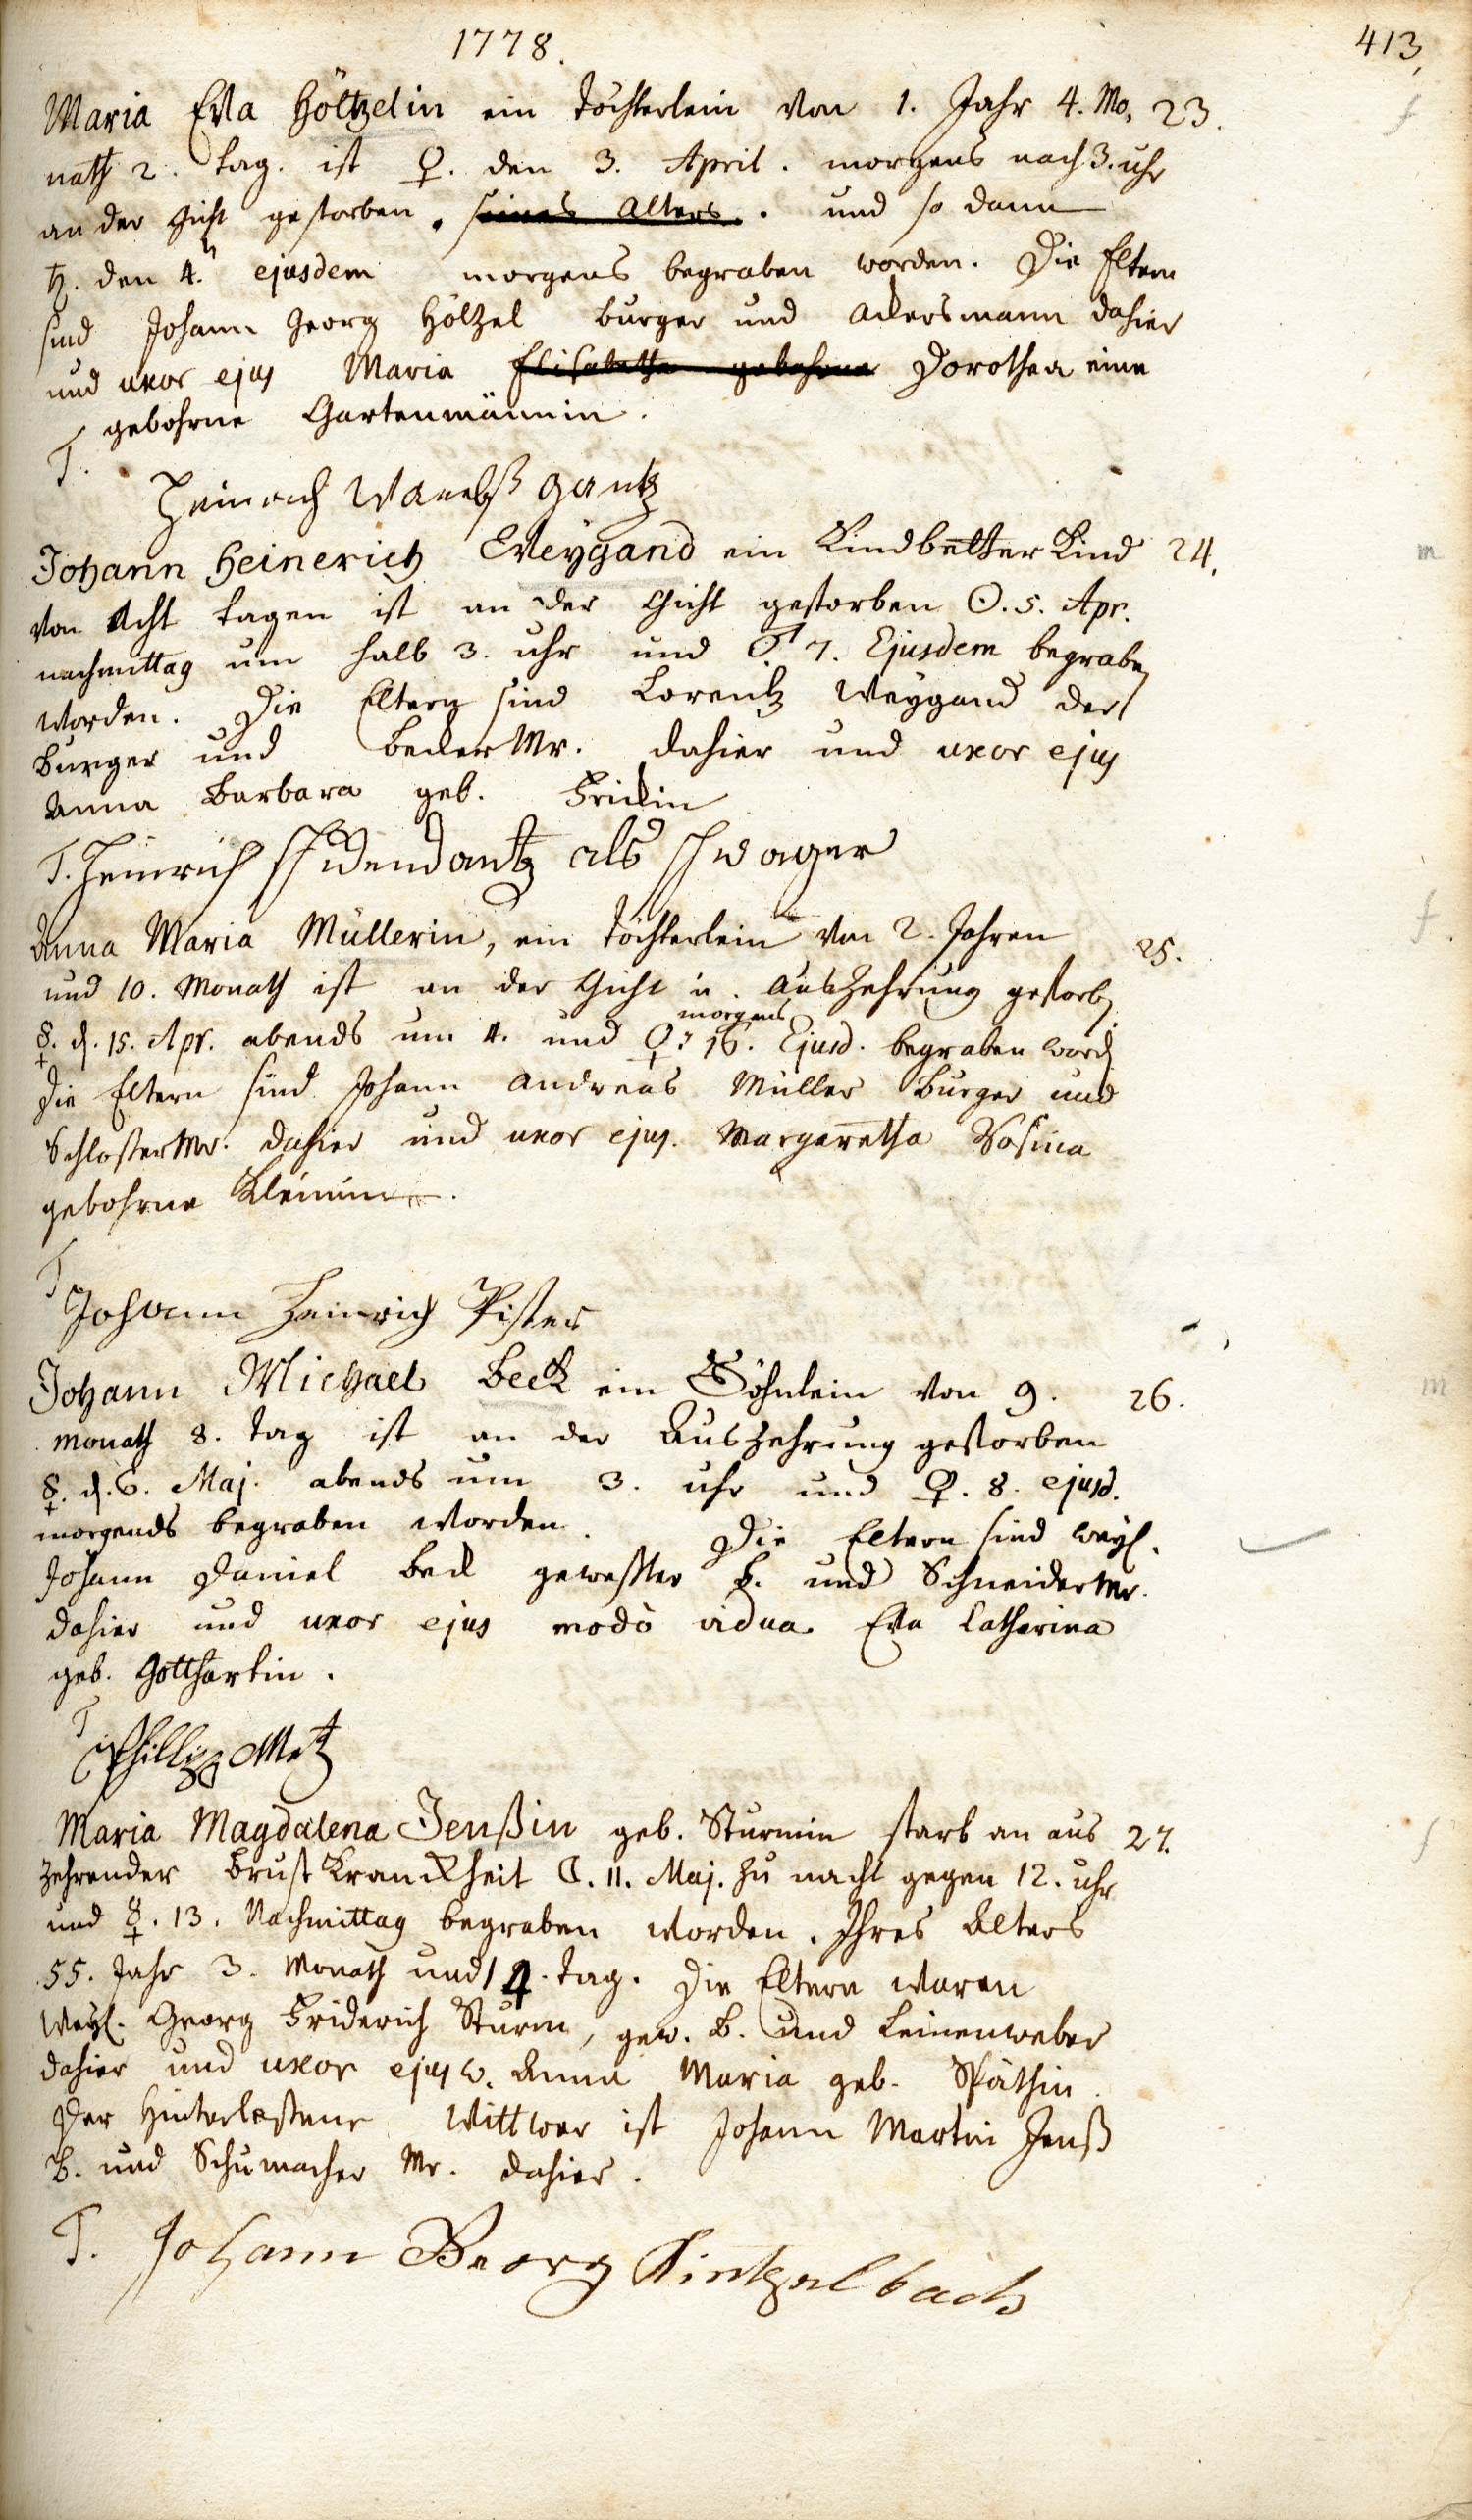 1778. 413.
Maria Eva Höltzelin ein Töchterlein von 1. Jahr 4. Mo, 23.
nath 2. tag. ist ♀. den 3. April. morgens nach 3. uhr
an der Gicht gestorben. seines Alters. und so dann
♄. den 4. ejusdem morgens begraben worden. Die Eltern
sind Johann Georg Höltzel burger und Ackersmann dahier
und uxor ejus Maria Elisabetha gebohrne Dorothea eine
gebohrne Gartenmännin.
T.
Heinrich
Johann Heinerich Weygand ein Kindbetter Kind 24.
von Acht tagen ist an der Gicht gestorben ☉. 5. Apr.
nachmittag um halb 3. uhr und ♂ 7. Ejusdem begraben
worden. Die Eltern sind Lorentz Weygand der
burger und becker Mr. dahier und uxor ejus
Anna Barbara geb. Frickin
T. Heinrich als schwager
Anna Maria Müllerin, ein Töchterlein von 2. Jahren 25.
und 10. Monath ist an der Gicht u. Auszehrung gestorb.
☿. d. 15. Apr. abends um 4. und ♀. 16. morgens Ejusd. begraben word.
Die Eltern sind Johann Andreas Müller Burger und
Schlosser Mr. dahier und uxor ejus. Margaretha Rosina
gebohrne
T
Johann Heinrich Pister
Johann Michael Beck ein Söhnlein von 9. 26.
monath 8. tag ist an der Auszehrung gestorben
☿. d. 6. Maj. abends um 3. uhr und ♀. 8. ejusd.
morgends begraben worden. Die Eltern sind weyl.
Johann Daniel Beck geweßter b. und Schneider Mr.
dahier und uxor ejus modò vidua Eva Catharina
geb. Gotthartin.
T
Phillip Metz
Maria Magdalena Jenßin geb. Sturmin starb an aus 27.
zehrender brust Kranckheit ☾. 11. Maj. zu nacht gegen 12. uhr
und ☿. 13. Nachmittag begraben worden. Ihres Alters
55. Jahr 3. Monath und 14. tag. Die Eltern waren
weyl. Georg Friderich Sturm, gew. B. und Leinenweber
dahier und uxor ejus w. Anna Maria geb. Späthin.
Der Hinterlaßene Wittwer ist Johann Martin Jenß
B. und Schumacher Mr. dahier.
T. Johann Georg Kintzelbach